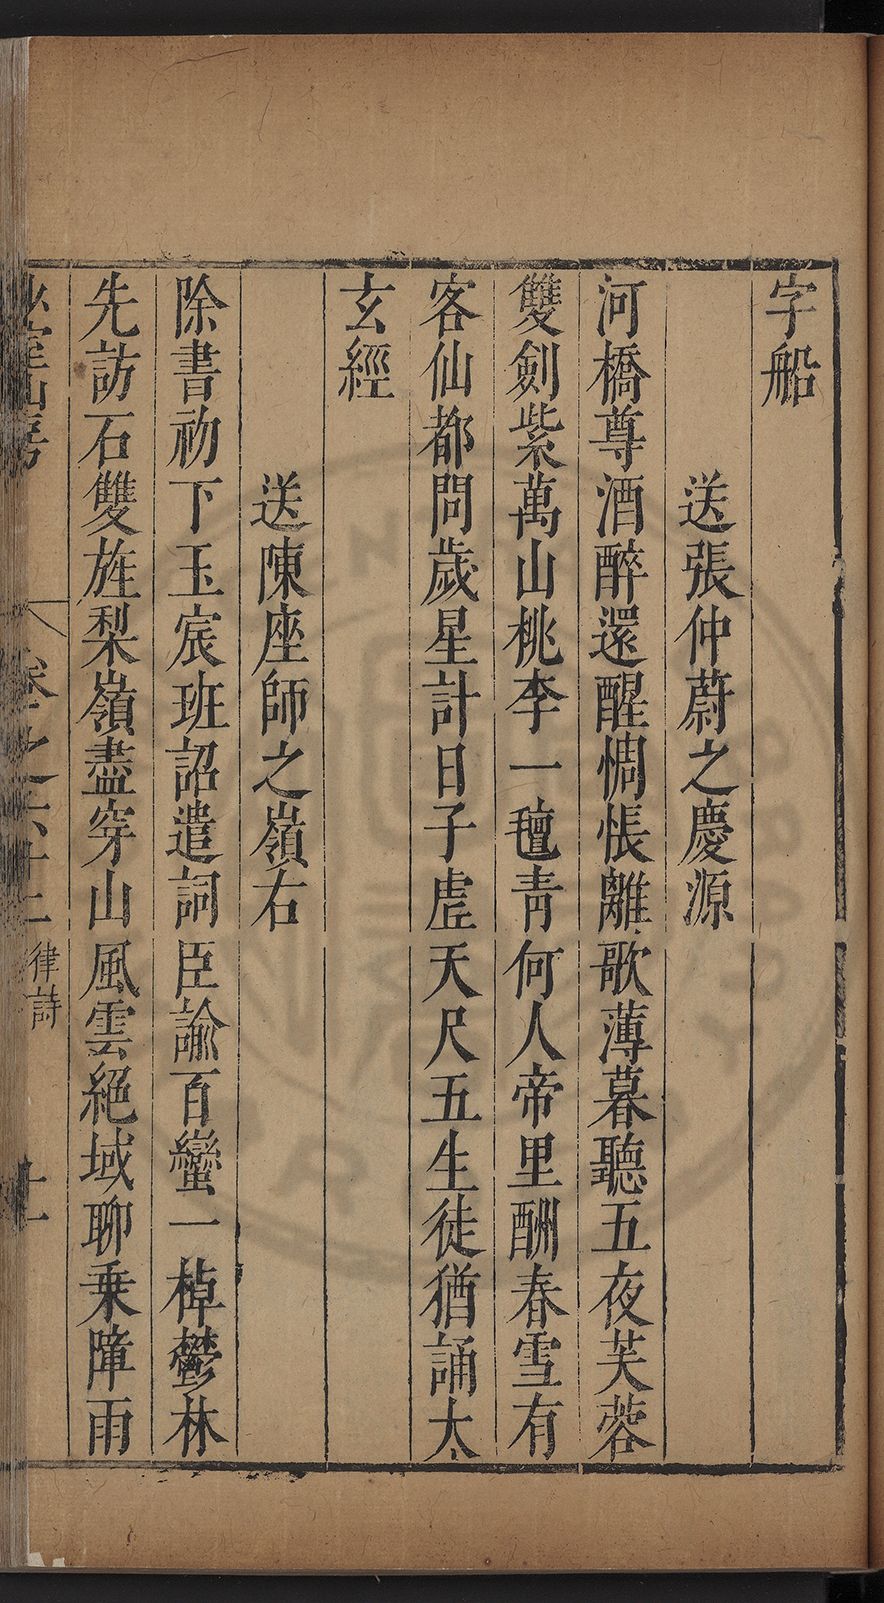 字船
送張仲蔚之慶源
河橋尊酒醉還醒惆悵離歌薄暮聽五夜芙蓉
雙劍紫萬山桃李一氊青何人帝里酬春雪有
客仙都問歲星計日子虛天尺五生徒猶誦太
玄經
送陳座師之嶺右
除書初下玉宸班詔遣詞臣諭百蠻一棹鬱林
先訪石雙旌梨嶺盡穿山風雲絕域聊乗障雨
卷之六十二 律詩